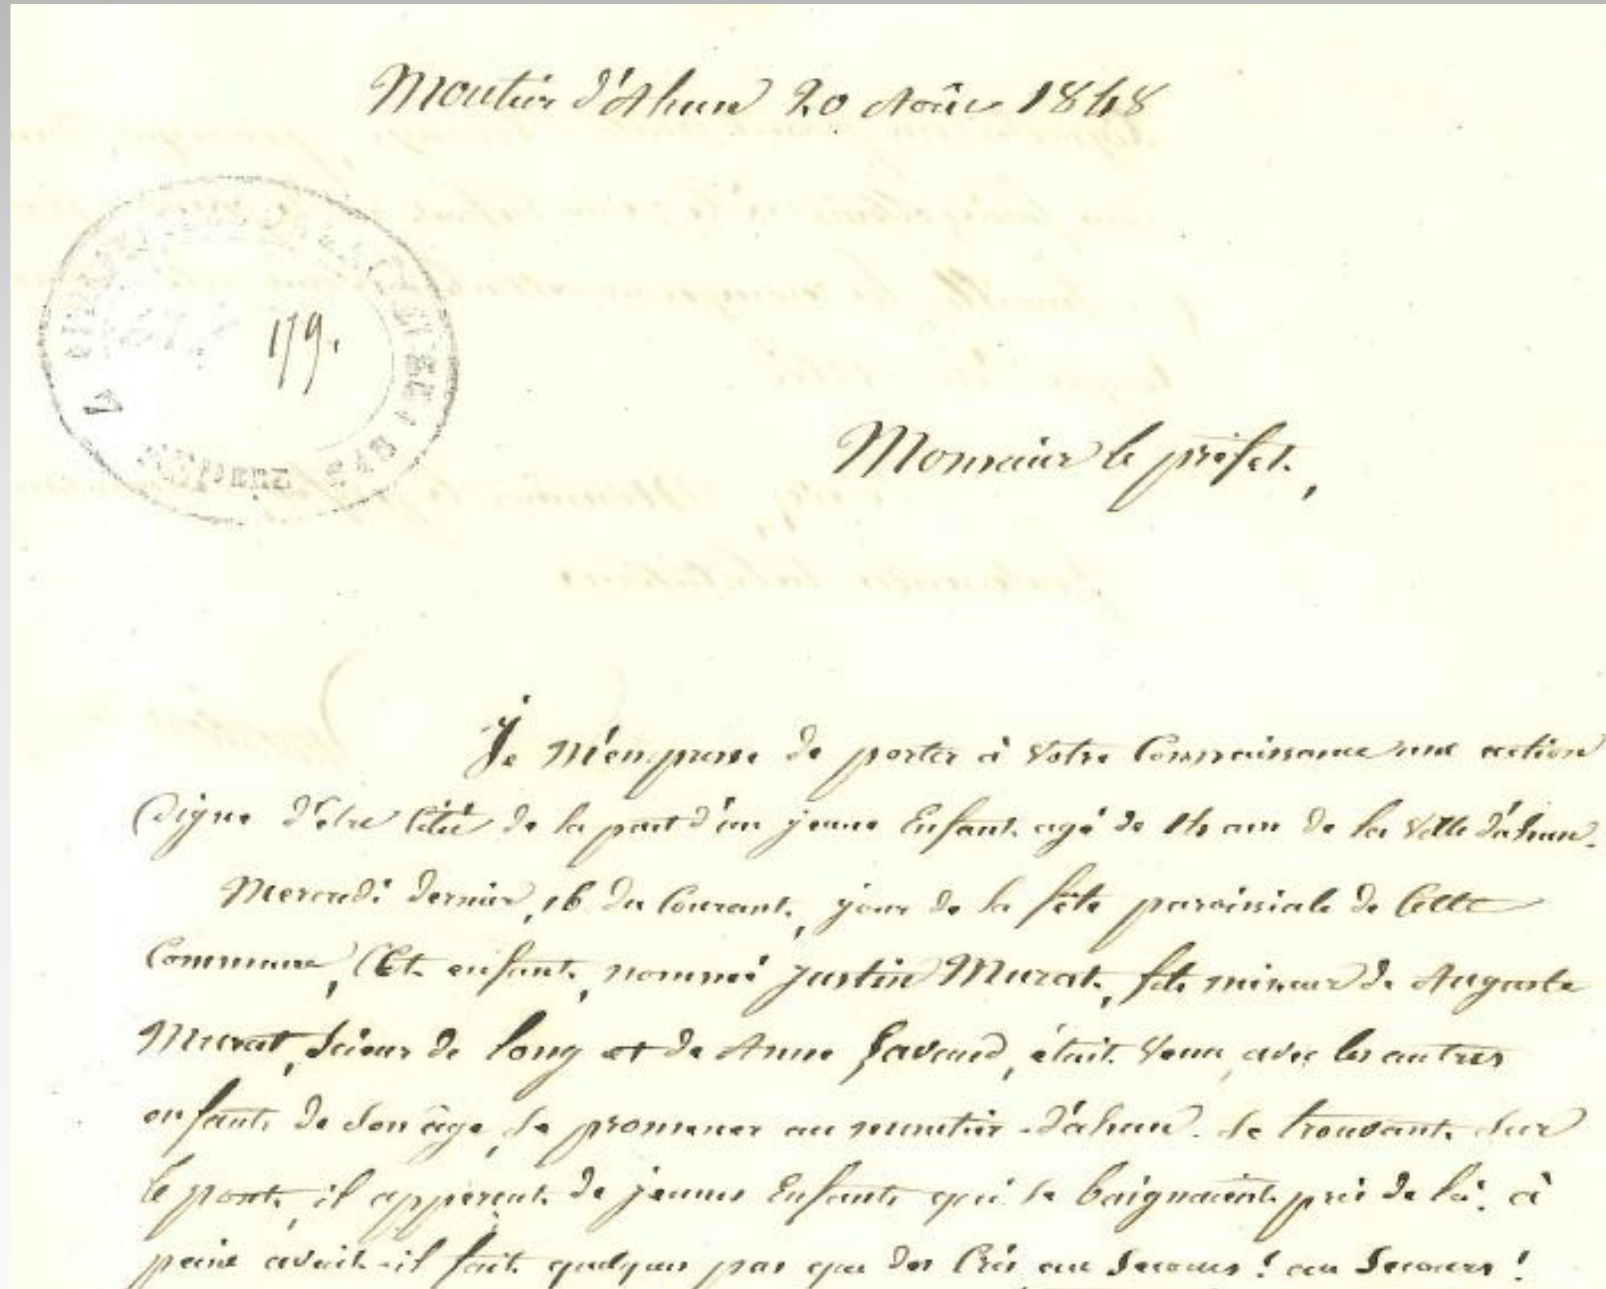 Moutier d'Ahun 20 Août 1848
179.
Monsieur le préfet,
Je m'empresse de porter à votre Connaissance une action
digne d'être Citée de la part d'un jeune Enfant agé de 14 ans de la ville d'ahun.
Mercredi dernier, 16 du Courant, jour de la fête paroissiale de Cette
Commune, Cet enfant, nommé justin Murat, fils mineur de Auguste
Murat, Scieur de long et de Anne Lavaud, était venu, avec les autres
enfants de son âge, se promener au moutier-d'ahun. se trouvant sur
le pont, il apperçut de jeunes Enfants qui se baignaient près de là. à
peine avait-il fait quelques pas que des Cris au Secours! au Secours!